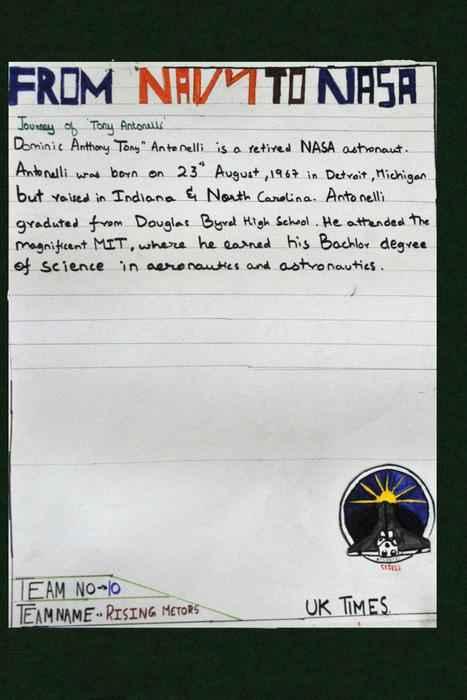 FROM NAVY TO NASA
Journey of 'Tony Antonelli'
Dominic Anthony "Tony" Antonelli is a retired NASA astronaut.
Antonelli was born on 23rd August, 1967 in Detroit, Michigan
but raised in Indiana & North Carolina. Antonelli
graduted from Douglas Byrd High School. He attended the
magnificent MIT, where he earned his Bachlor degree
of science in aeronautics and astronautics.
TEAM NO→10
TEAM NAME→ RISING METORS
UK TIMES